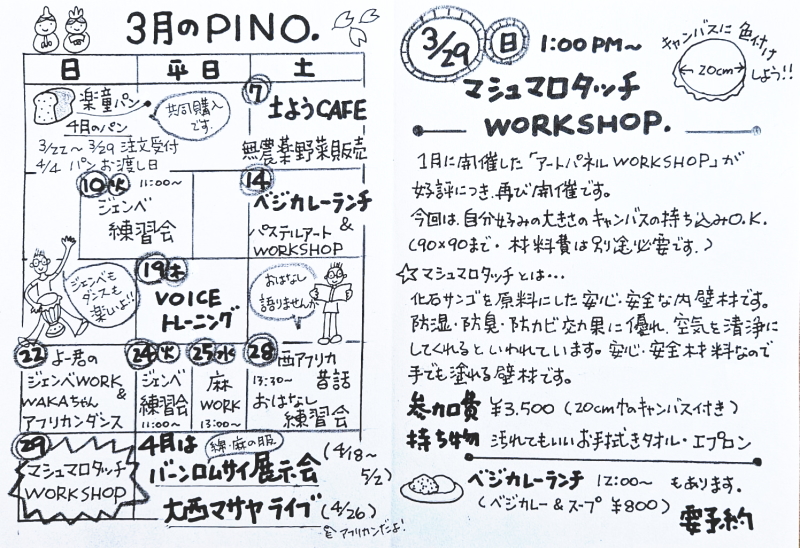 3月のPINO.
日 平日 土
楽童パン
4月のパン
3/22〜3/29 注文受付
4/4 パンお渡し日
共同購入
です.
7
土ようCAFE
無農薬野菜販売
10 火 11:00〜
ジェンベ
練習会
14
ベジカレーランチ
&
パステルアート
WORKSHOP
ジェンベも
ダンスも
楽しいよ!!
19 木
VOICE
トレーニング
おはなし
語りませんか
22 よー君の
ジェンベWORK
&
WAKAちゃん
アフリカンダンス
24 火
ジェンベ
練習会
11:00〜
25 水
麻
WORK
13:00〜
28 西アフリカ
昔話
13:30〜
おはなし
練習会
29
マシュマロタッチ
WORKSHOP
4月は 綿・麻の服
バーンロムサイ展示会 (4/18〜
5/2)
大西マサヤライブ (4/26)
アフリカンだよ!
3/29 日 1:00PM〜
キャンバスに 色付け
しよう!!
20cm
マシュマロタッチ
WORKSHOP.
1月に開催した「アートパネルWORKSHOP」が
好評につき、再び開催です。
今回は、自分好みの大きさのキャンバスの持ち込みO.K.
(90×90まで・材料費は別途必要です.)
☆マシュマロタッチとは…
化石サンゴを原料にした安心・安全な内壁材です。
防湿・防臭・防カビ効果に優れ、空気を清浄に
してくれるといわれています。安心・安全材料なので
手でも塗れる壁材です。
参加費 ¥3,500 (20cm巾のキャンバス付き)
持ち物 汚れてもいいお手拭きタオル・エプロン
ベジカレーランチ 12:00〜 もあります.
(ベジカレー&スープ ¥800)
要予約